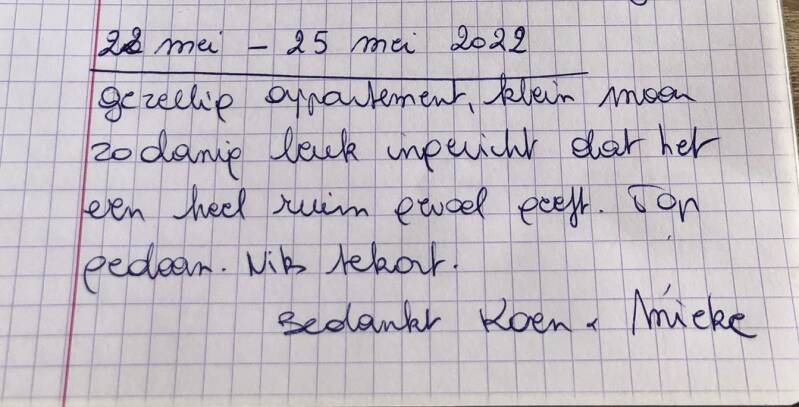 22 mei - 25 mei 2022
gezellig appartement, klein maar
zodanig leuk ingericht dat het
een heel ruim gevoel geeft. Top
gedaan. Niks tekort.
Bedankt Koen & Mieke